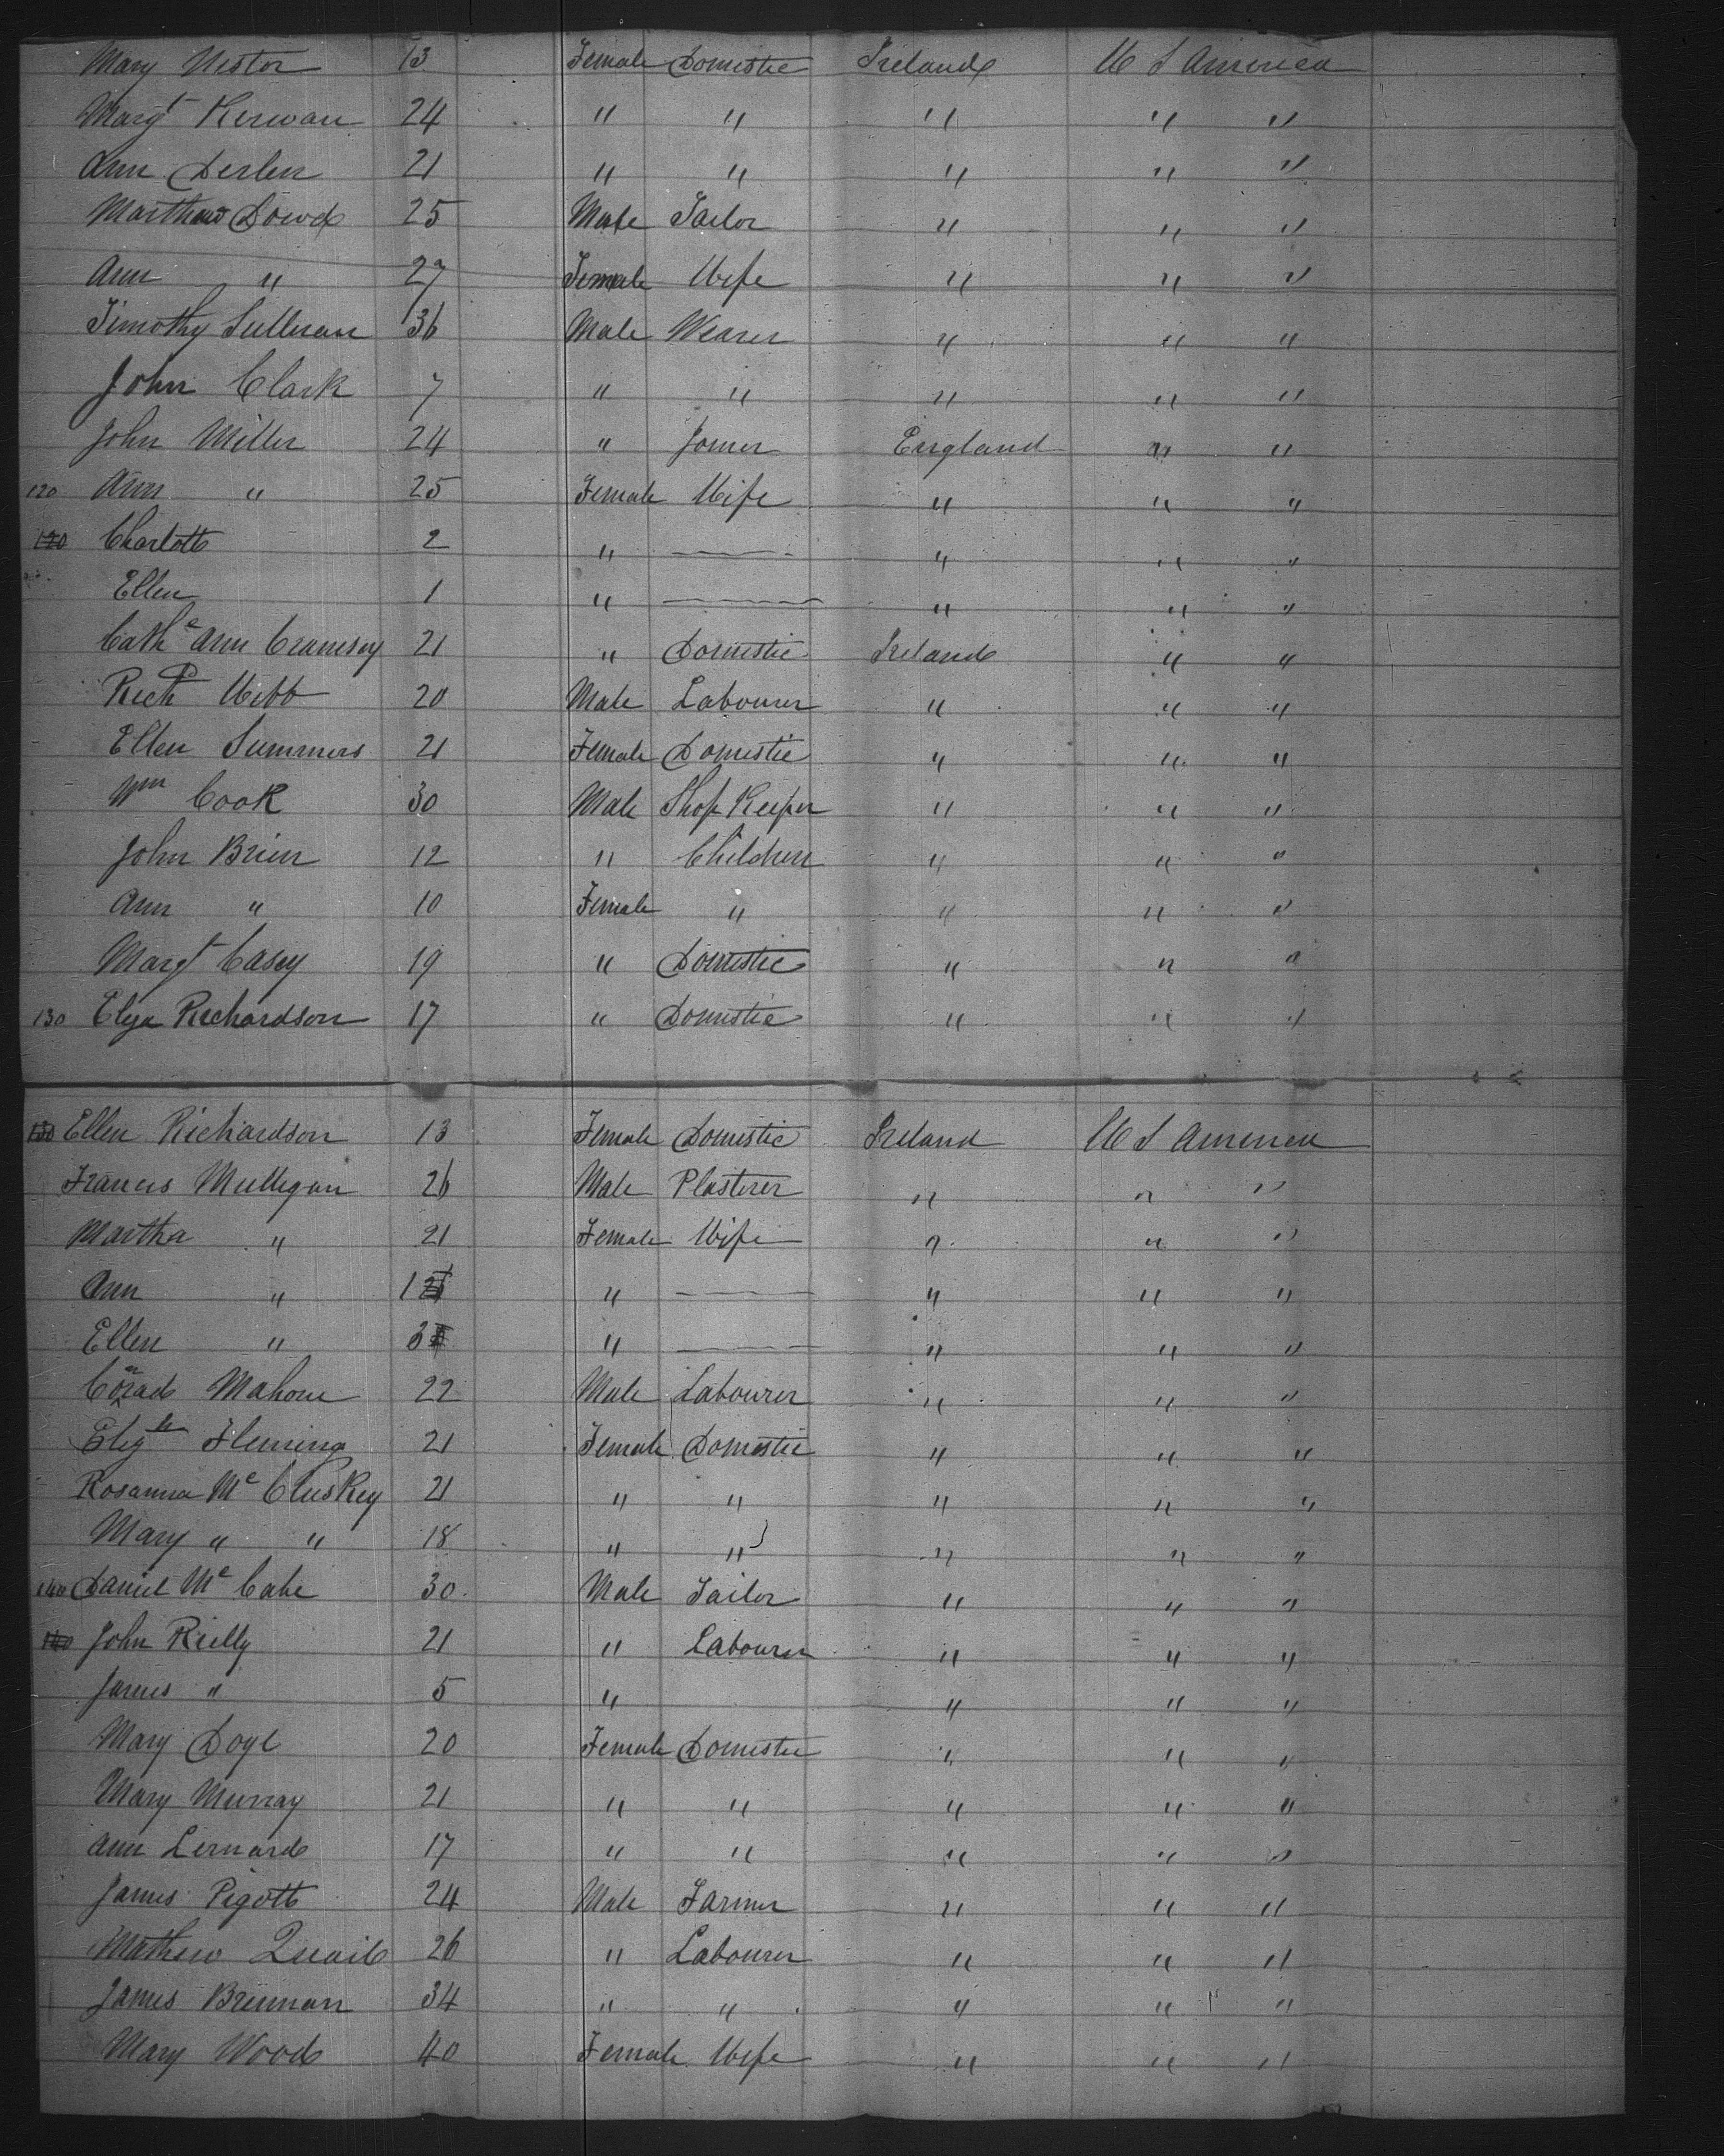 Mary Nestor 13 Female Domestic Ireland U S America
Margt Kerwan 24 " " " " "
Ann Derlen 21 " " " " "
Matthew Dowd 25 Male Tailor " " "
Ann " 27 Female Wife " " "
Timothy Sullivan 36 Male Weaver " " "
John Clark 7 " " " " "
John Miller 24 " Joiner England " "
120 Ann " 25 Female Wife " " "
120 Charlotte 2 " — " " "
Ellen 1 " — " " "
Cathe Ann Cramsey 21 " Domestic Ireland " "
Richd Webb 20 Male Labourer " " "
Ellen Summers 21 Female Domestic " " "
Wm Cook 30 Male Shop Keeper " " "
John Brien 12 " Children " " "
Ann " 10 Female " " " "
Margt Casey 19 " Domestic " " "
130 Eliza Richardson 17 " Domestic " " "
130 Ellen Richardson 13 Female Domestic Ireland U S America
Francis Mulligan 26 Male Plasterer " " "
Martha " 21 Female Wife " " "
Ann " 1 " — " " "
Ellen " 3 " — " " "
Conrad Mahone 22 Male Labourer " " "
Elizth Fleming 21 Female Domestic " " "
Rosanna Mc Cluskey 21 " " " " "
Mary " " 18 " " " " "
140 Daniel Mc Cabe 30 Male Tailor " " "
140 John Rielly 21 " Labourer " " "
James " 5 " " " "
Mary Doyl 20 Female Domestic " " "
Mary Murray 21 " " " " "
Ann Lernard 17 " " " " "
James Pigott 24 Male Farmer " " "
Mathew Quail 26 " Labourer " " "
James Brennan 34 " " " " "
Mary Wood 40 Female Wife " " "